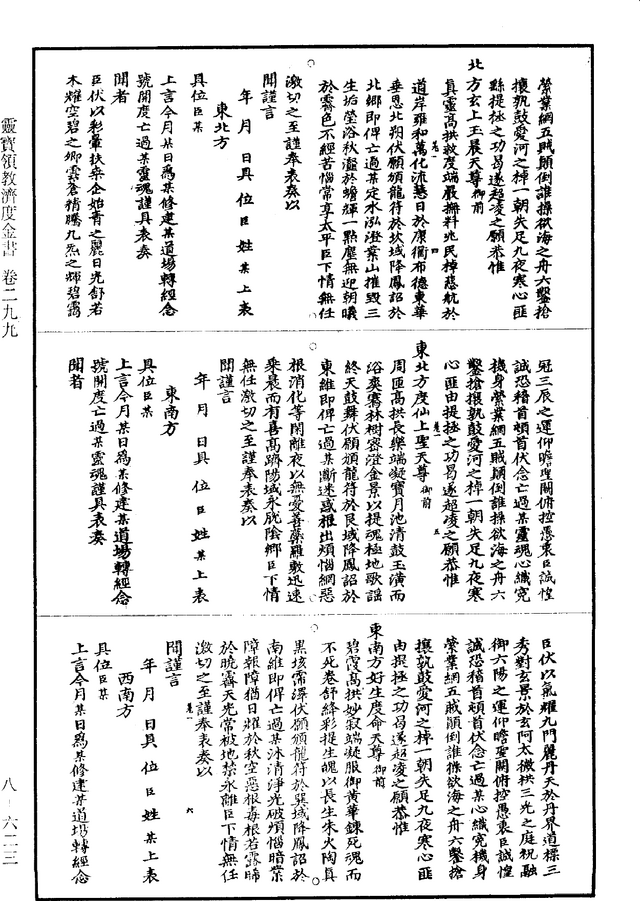 縈業網五賊顛倒誰操欲海之舟六鑿搶
攘孰鼓愛河之棹一朝失足九夜寒心匪
繇提拯之功曷遂超凌之願恭惟
北方玄上玉晨天尊御前
真靈高拱救度端嚴撫料兆民棹慈航於
道岸雍和萬化流慧日於康衢布德東華
垂恩北朔伏願頒龍符於坎域降鳳詔於
北鄉即俾亡過某定水泓澄業山摧毀三
生垢瑩浴秋瀲於蟾輝一點塵無迎朝曦
於霽色不經苦惱常享太平臣下情無任
激切之至謹奉表奏以
聞謹言
年 月 日具 位 臣 姓 某 上 表
東北方
具位臣某
上言今月某日為某修建某道場轉經念
號開度亡過某靈魂謹具表奏
聞者
臣伏以彩暈扶桑企始青之麗日光舒若
木耀空碧之卿雲蒼精騰九炁之輝碧靄
冠三辰之運仰瞻聖闕俯控愚衷臣誠惶
誠恐稽首頓首伏念亡過某靈魂心織寃
機身縈業網五賊顛倒誰操欲海之舟六
鑿搶攘孰鼓愛河之棹一朝失足九夜寒
心匪由提拯之功曷遂超凌之願恭惟
東北方度仙上聖天尊御前
周匝高拱長樂端凝寶月池清鼓玉潢而
浴爽騫林樹密澄金景以提魂極地歌謠
終天鼓舞伏願頒龍符於艮域降鳳詔於
東維即俾亡過某斷迷惑根出煩惱網惡
根消化等閑離夜以無憂善藥羅敷迅速
乘晨而有喜高躋陽域永脫陰鄉臣下情
無任激切之至謹奉表奏以
聞謹言
年 月 日具 位 臣 姓 某 上 表
東南方
具位臣某
上言今月某日為某修建某道場轉經念
號開度亡過某靈魂謹具表奏
聞者
臣伏以氣耀九門麗丹天於丹界道標三
秀對玄景於玄阿太微拱三光之庭祝融
御六陽之運仰瞻聖闕俯控愚衷臣誠惶
誠恐稽首頓首伏念亡過某心織寃機身
縈業網五賊顛倒誰操欲海之舟六鑿搶
攘孰鼓愛河之棹一朝失足九夜寒心匪
由提拯之功曷遂超凌之願恭惟
東南方好生度命天尊御前
碧霞高拱妙寂端凝服御黃華鍊死魂而
不死卷舒絳彩提生魄以長生朱火陶真
黑垓霈澤伏願頒龍符於巽域降鳳詔於
南維即俾亡過某沐清淨光破煩惱暗業
障報障猶日耀於秋空惡根毒根若露晞
於曉霽天光常被地禁永離臣下情無任
激切之至謹奉表奏以
聞謹言
年 月 日具 位 臣 姓 某 上 表
西南方
具位臣某
上言今月某日為某修建某道場轉經念
靈寶領教濟度金書 卷二九九
八-六二三